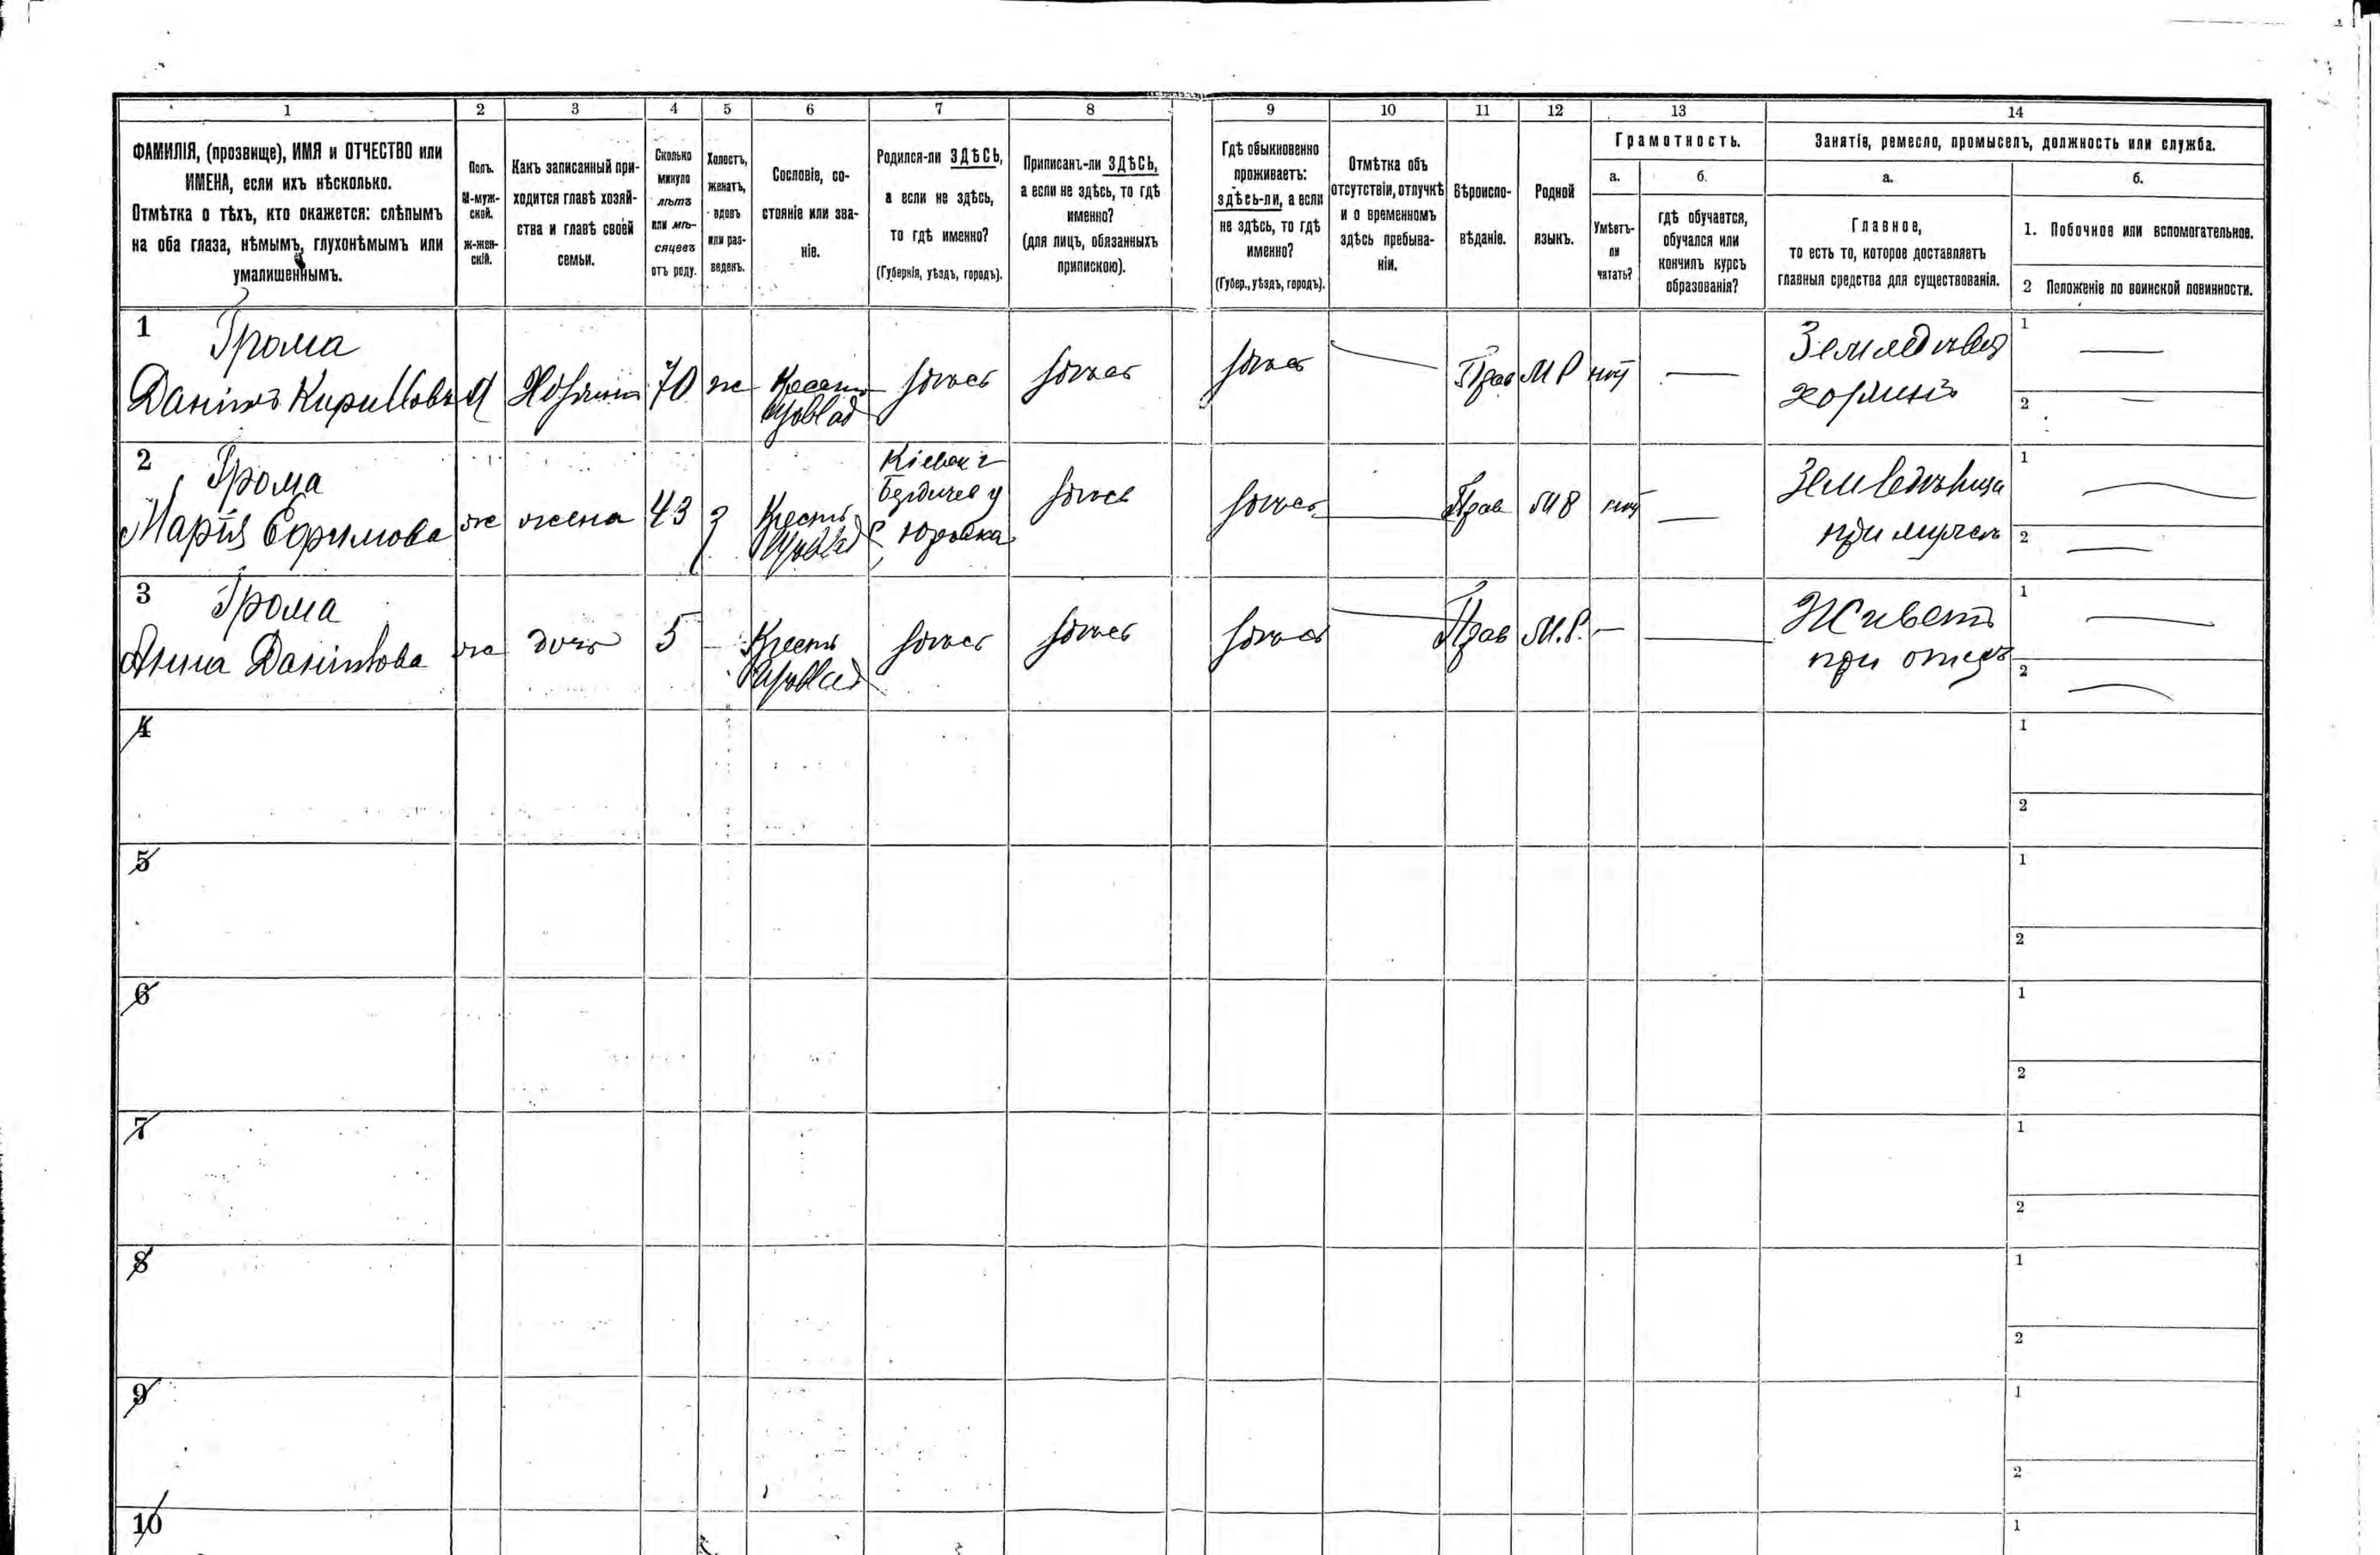 1 2 3 4 5 6 7 8 9 10 11 12 13 14
ФАМИЛІЯ, (прозвище), ИМЯ и ОТЧЕСТВО или
ИМЕНА, если ихъ нѣсколько.
Отмѣтка о тѣхъ, кто окажется: слѣпымъ
на оба глаза, нѣмымъ, глухонѣмымъ или
умалишеннымъ.
Полъ.
М-муж-
ской.
Ж-жен-
скій.
Какъ записанный при-
ходится главѣ хозяй-
ства и главѣ своей
семьи.
Сколько
минуло
лѣтъ
или мѣ-
сяцевъ
отъ роду.
Холостъ,
женатъ,
вдовъ
или раз-
веденъ.
Сословіе, со-
стояніе или зва-
ніе.
Родился-ли ЗДѢСЬ,
а если не здѣсь,
то гдѣ именно?
(Губернія, уѣздъ, городъ).
Приписанъ-ли ЗДѢСЬ,
а если не здѣсь, то гдѣ
именно?
(для лицъ, обязанныхъ
припискою).
Гдѣ обыкновенно
проживаетъ:
здѣсь-ли, а если
не здѣсь, то гдѣ
именно?
(Губер., уѣздъ, городъ).
Отмѣтка объ
отсутствіи, отлучкѣ
и о временномъ
здѣсь пребыва-
ніи.
Вѣроиспо-
вѣданіе.
Родной
языкъ.
Грамотность.
а.
Умѣетъ-
ли
читать?
б.
гдѣ обучается,
обучался или
кончилъ курсъ
образованія?
Занятія, ремесло, промыселъ, должность или служба.
а.
Главное,
то есть то, которое доставляетъ
главныя средства для существованія.
б.
1. Побочное или вспомогательное.
2 Положеніе по воинской повинности.
1 Грома
Даніилъ Кирилловъ М Хозяинъ 70 ж Крестья здѣсь здѣсь здѣсь — Прав М Р нѣт —
1 —
2 —
2 Грома
Марія Ефимова ж жена 43 з Крестья
Кіевск г
Бердичев у
с Юровка
здѣсь здѣсь — Прав М Р нѣт —
при мужѣ
1 —
2 —
3 Грома
Анна Даніилова ж дочь 5 — Крестья здѣсь здѣсь здѣсь — Прав М.Р. — —
Живетъ
при отцѣ
1 —
2 —
4
1
2
5
1
2
6
1
2
7
1
2
8
1
2
9
1
2
10
1